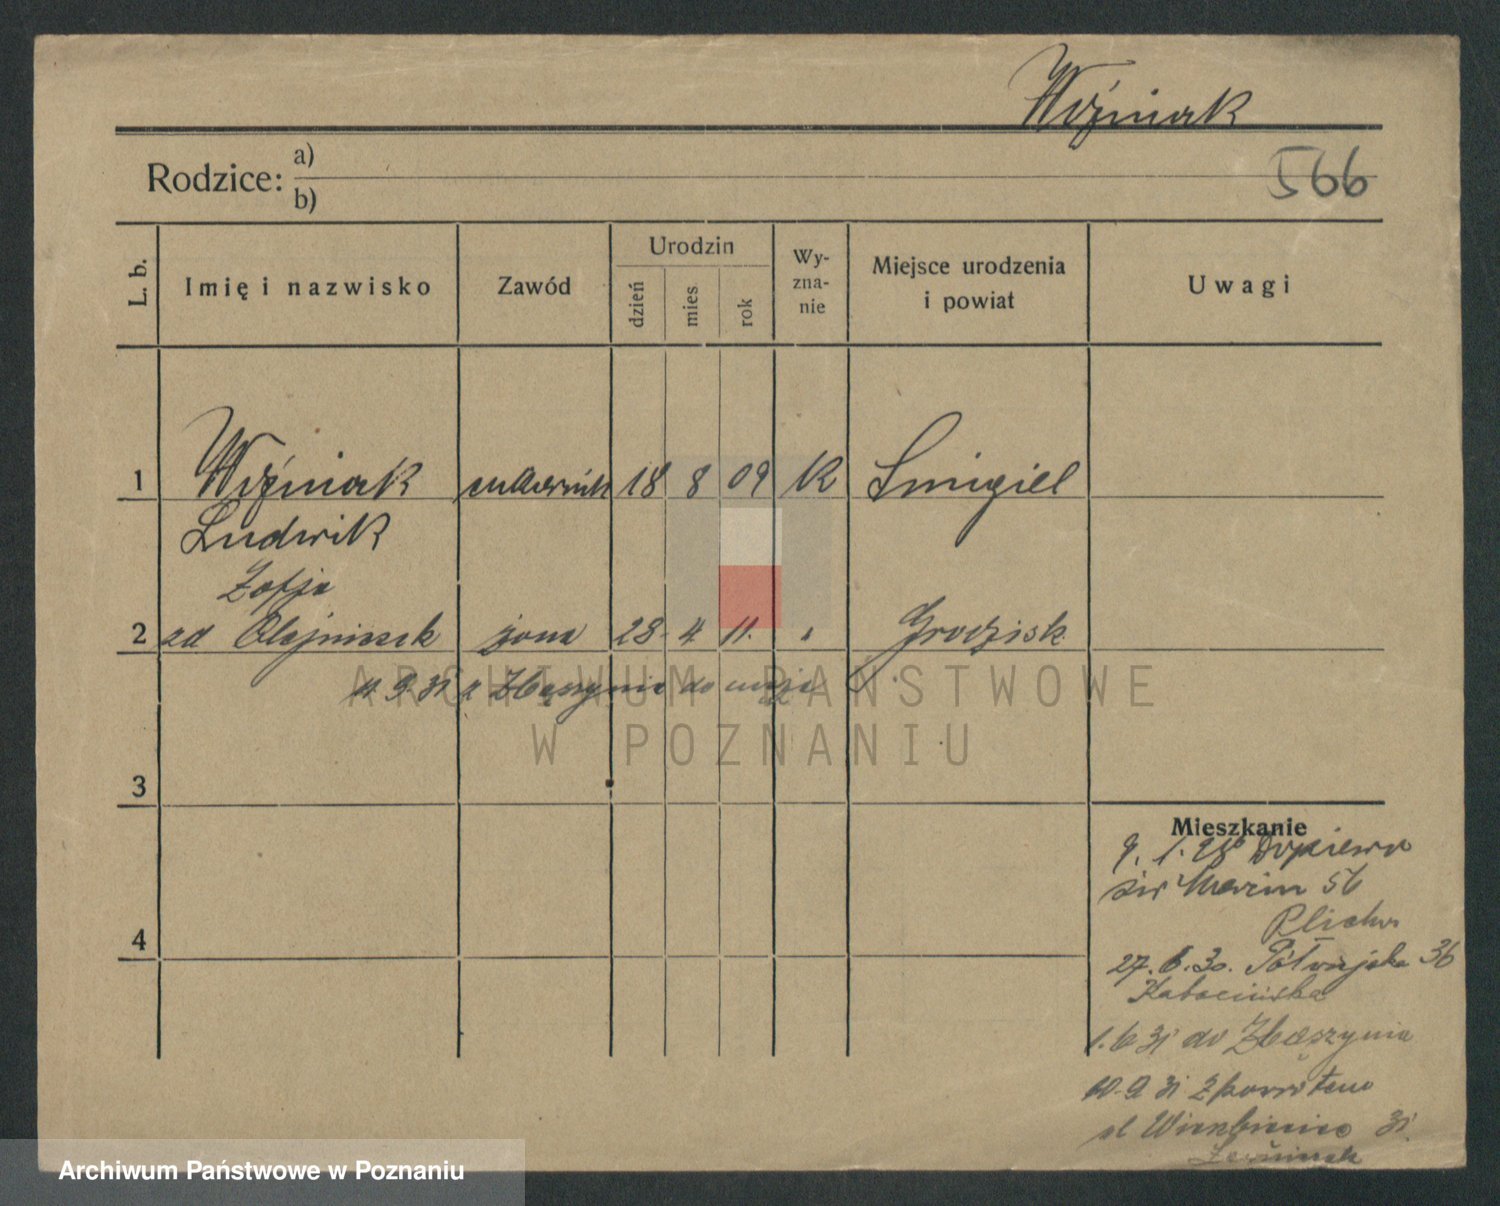 Woźniak
Rodzice: a)
b)
566
L. b.
Imię i nazwisko
Zawód
Urodzin
dzień
mies.
rok
Wy-
zna-
nie
Miejsce urodzenia
i powiat
Uwagi
1 Woźniak cukiernik 18 8 09 K Śmigiel
Ludwik
Zofja
2 zd Olejniczak żona 28 4 11. " Grodzisk
10.9.31 z Zbąszynia do męża
ARCHIWUM PAŃSTWOWE
W POZNANIU
3
Mieszkanie
9.1.28 Dopiewo
św Marcin 56
4
27.6.30. Półwiejska 36
1.6 31 do Zbąszynia
10.9 31 z powrotem
31
Archiwum Państwowe w Poznaniu